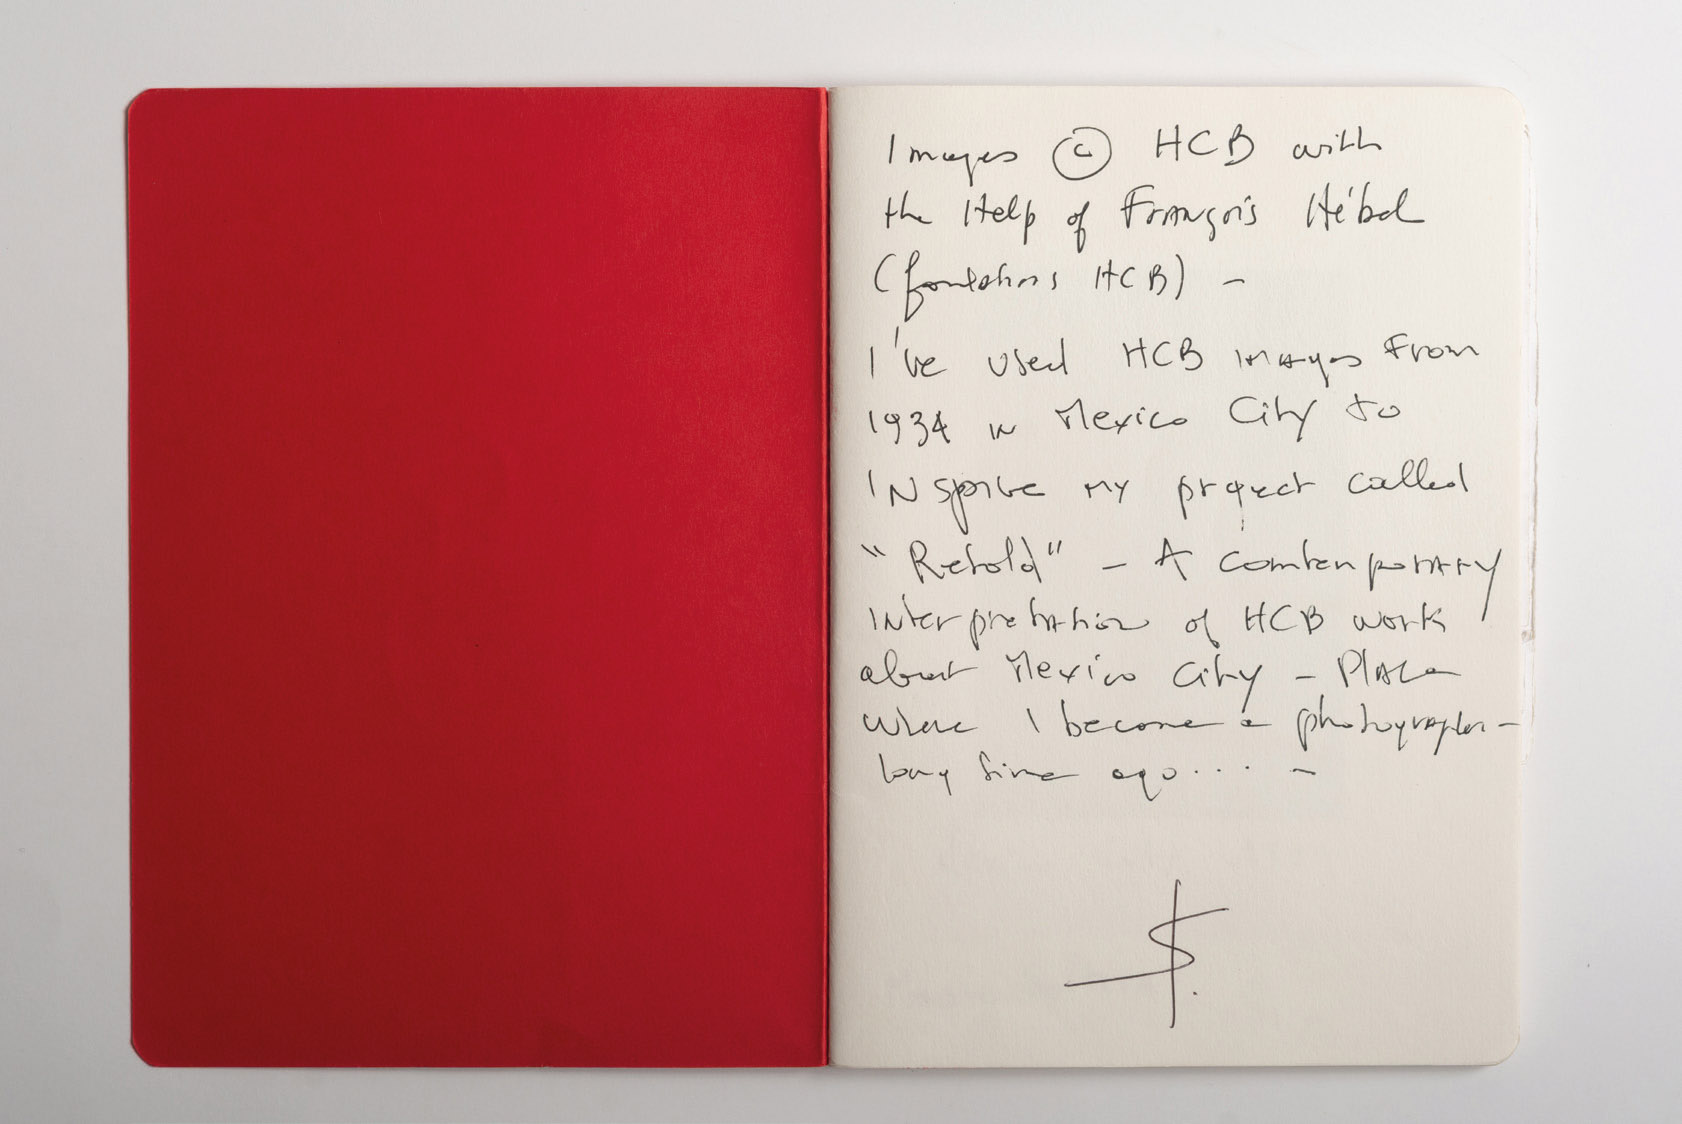 Images © HCB with
the Help of François Hébel
(fondations HCB) –
I've used HCB images from
1934 in Mexico City to
INspire my project called
"Retold" – A contemporary
interpretation of HCB work
about Mexico City – Place
where I become a photographer –
long time ago.... –
S.